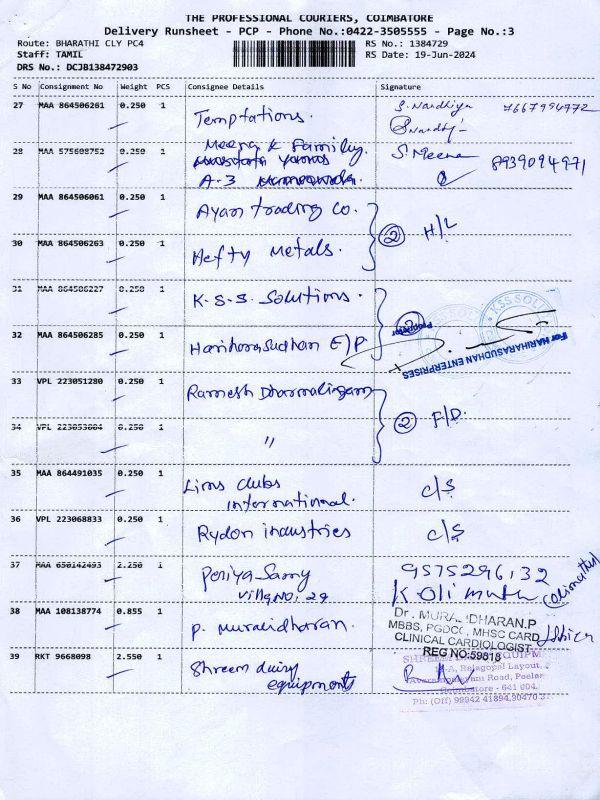 THE PROFESSIONAL COURIERS, COIMBATORE
Delivery Runsheet - PCP - Phone No.:0422-3505555 - Page No.:3
Route: BHARATHI CLY PC4 RS No.: 1384729
Staff: TAMIL RS Date: 19-Jun-2024
DRS No.: DCJB138472903
S No Consignment No Weight PCS Consignee Details Signature
27 MAA 864506261 0.250 1 Temptations. 7667994972
28 MAA 575608752 0.250 1 Meena K Family. S. Meena 8939094971
A-3
29 MAA 864506061 0.250 1 Ayan trading co.
② H/L
30 MAA 864506263 0.250 1 Hefty Metals.
31 MAA 864506227 0.250 1 K.S.S. Solutions.
KSS SOLU
Proprietor
32 MAA 864506285 0.250 1 Hariharasudhan E/P
For HARIHARASUDHAN ENTERPRISES
33 VPL 223051280 0.250 1 Ramesh Dharmalingam
② F/D.
34 VPL 0.250 1 "
35 MAA 864491035 0.250 1 Lions clubs c/s
international.
36 VPL 223068833 0.250 1 Rydon industries c/s
37 MAA 650142493 2.250 1 Periya Samy 9575296132
Villa NO; 29
38 MAA 108138774 0.855 1 P. Muralidharan.
Dr. MURALIDHARAN.P
MBBS, PGDCC, MHSC CARD
CLINICAL CARDIOLOGIST
REG NO:59818
39 RKT 9668098 2.550 1 Shreem dairy
equipments
Rajagopal Layout,
Road, Peelam
Coimbatore - 641 004.
Ph: (Off) 99942 41894,90470 3